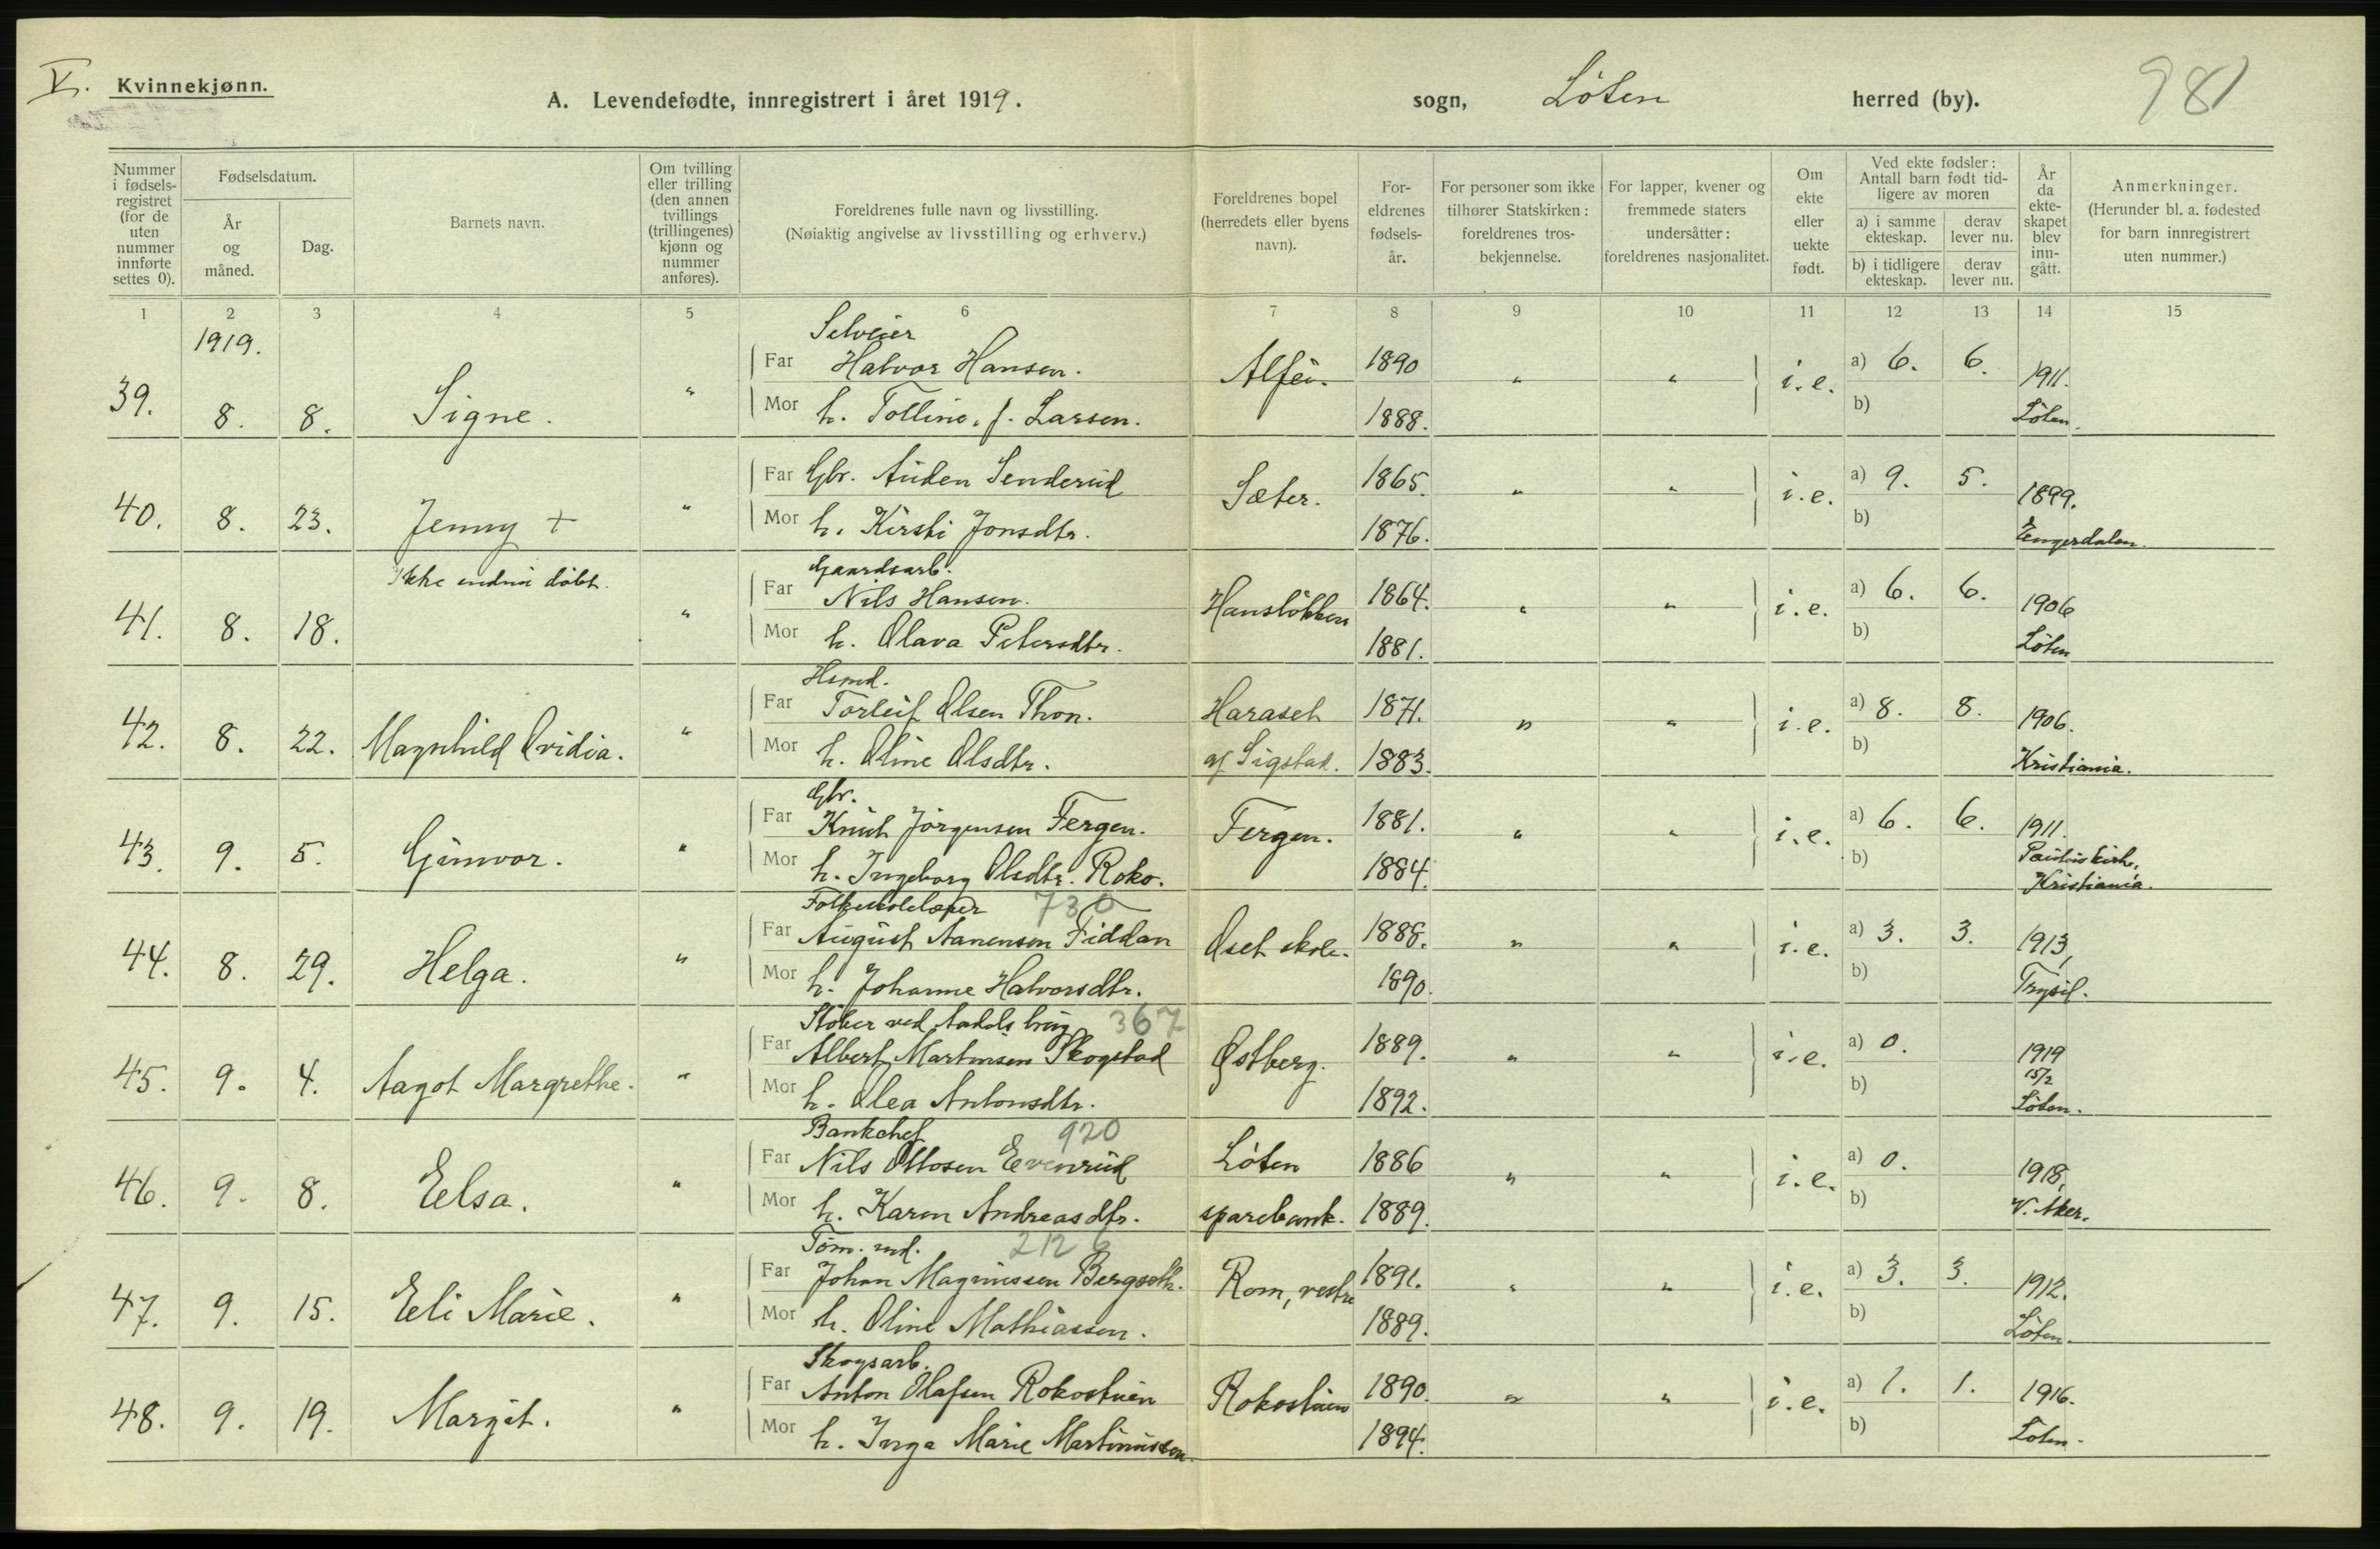 V. Kvinnekjønn.
A. Levendefødte, innregistrert i året 1919.
sogn, Löten herred (by).
981
Nummer i fødsels-registret (for de uten nummer innførte settes 0).
Fødselsdatum.
År og måned.
Dag.
Barnets navn.
Om tvilling eller trilling (den annen tvillings (trillingenes) kjønn og nummer anføres).
Foreldrenes fulle navn og livsstilling.
(Nøiaktig angivelse av livsstilling og erhverv.)
Foreldrenes bopel (herredets eller byens navn).
For-eldrenes fødsels-år.
For personer som ikke tilhører Statskirken: foreldrenes tros-bekjennelse.
For lapper, kvener og fremmede staters undersåtter: foreldrenes nasjonalitet.
Om ekte eller uekte født.
Ved ekte fødsler: Antall barn født tid-ligere av moren
a) i samme ekteskap. derav lever nu.
b) i tidligere ekteskap. derav lever nu.
År da ekte-skapet blev inn-gått.
Anmerkninger.
(Herunder bl. a. fødested for barn innregistrert uten nummer.)
1 2 3 4 5 6 7 8 9 10 11 12 13 14 15
1919.
Selveier
Far Halvor Hansen. Alfei. 1890 a) 6. 6. 1911.
39. 8. 8. Signe. " " " i. e.
Mor h. Tolline, f. Larsen. 1888. b) Löten.
Far Gbr. Auden Senderud Sæter. 1865. a) 9. 5. 1899.
40. 8. 23. Jenny + " " " i. e.
Mor h. Kirsti Jonsdtr. 1876. b) Engerdalen.
Ikke endnu döbt.
Gaardsarb.
Far Nils Hansen. Hanslökken 1864. a) 6. 6. 1906
41. 8. 18. " " " i. e.
Mor h. Olava Petersdtr. 1881. b) Löten
Hsmd.
Far Torleif Olsen Thon. Haraset 1871. a) 8. 8. 1906.
42. 8. 22. Magnhild Ovidia. " " " i. e.
Mor h. Oline Olsdtr. af Sigstad. 1883. b) Kristiania.
Gbr.
Far Knut Jörgensen Fergen. Fergen. 1881. a) 6. 6. 1911.
43. 9. 5. Gunvor. " " " i. e.
Mor h. Ingeborg Olsdtr. Roko. 1884. b) Paulus kirke, Kristiania.
Folkeskolelærer 730
Far August Aanensen Fiddan Oset skole. 1888. a) 3. 3. 1913,
44. 8. 29. Helga. " " " i. e.
Mor h. Johanne Halvorsdtr. 1890. b) Trysil.
Stöber ved Aadals brug 367
Far Albert Martinsen Skogstad Østberg. 1889. a) 0. 1919 15/2
45. 9. 4. Aagot Margrethe. " " " i. e.
Mor h. Olea Antonsdtr. 1892. b) Löten.
Bankchef 920
Far Nils Ottosen Evenrud Löten 1886 a) 0. 1918,
46. 9. 8. Eelsa. " " " i. e.
Mor h. Karen Andreasdtr. sparebank. 1889. b) V. Aker.
Töm. md. 2126
Far Johan Magnussen Bergseth. Rom, vestre 1891. a) 3. 3. 1912.
47. 9. 15. Eli Marie. " " " i. e.
Mor h. Oline Mathiassen. 1889. b) Löten.
Skogsarb.
Far Anton Olafsen Rokostuen Rokostuen 1890. a) 1. 1. 1916.
48. 9. 19. Margit. " " " i. e.
Mor h. Inga Marie Martinussen. 1894. b) Löten.